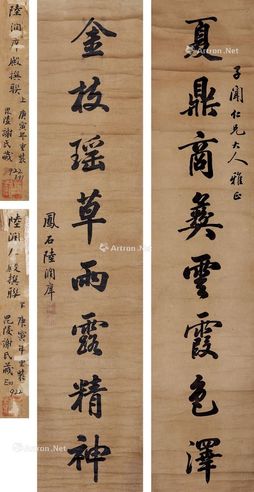 夏鼎商彝雲霞色澤
子開仁兄大人雅正
金枝瑤草雨露精神
鳳石陸潤庠
陸潤庠殿撰聯 上 庚寅年重裝
毘陵謝氏藏 922
陸潤庠殿撰聯 下 庚寅年重裝
毘陵謝氏藏 922
Artron.Net
Artron.Net
Artron.Net
Artron.Net